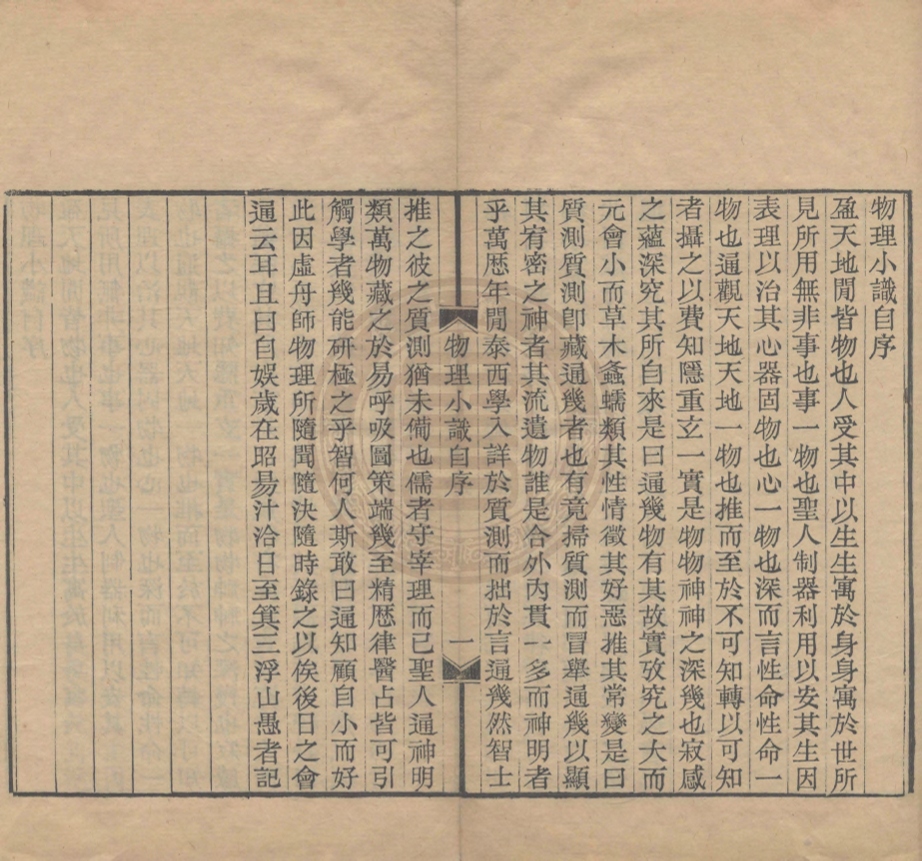 物理小識自序
盈天地閒皆物也人受其中以生生寓於身身寓於世所
見所用無非事也事一物也聖人制器利用以安其生因
表理以治其心器固物也心一物也深而言性命性命一
物也通觀天地天地一物也推而至於不可知轉以可知
者攝之以費知隱重玄一實是物物神神之深幾也寂感
之蘊深究其所自來是曰通幾物有其故實攷究之大而
元會小而草木螽蠕類其性情徵其好惡推其常變是曰
質測質測卽藏通幾者也有竟掃質測而冒舉通幾以顯
其宥密之神者其流遺物誰是合外內貫一多而神明者
乎萬厯年閒泰西學入詳於質測而拙於言通幾然智士
物理小識自序
一
推之彼之質測猶未備也儒者守宰理而已聖人通神明
類萬物藏之於易呼吸圖策端幾至精厯律醫占皆可引
觸學者幾能研極之乎智何人斯敢曰通知顧自小而好
此因虛舟師物理所隨聞隨決隨時錄之以俟後日之會
通云耳且曰自娛歲在昭昜汁洽日至箕三浮山愚者記